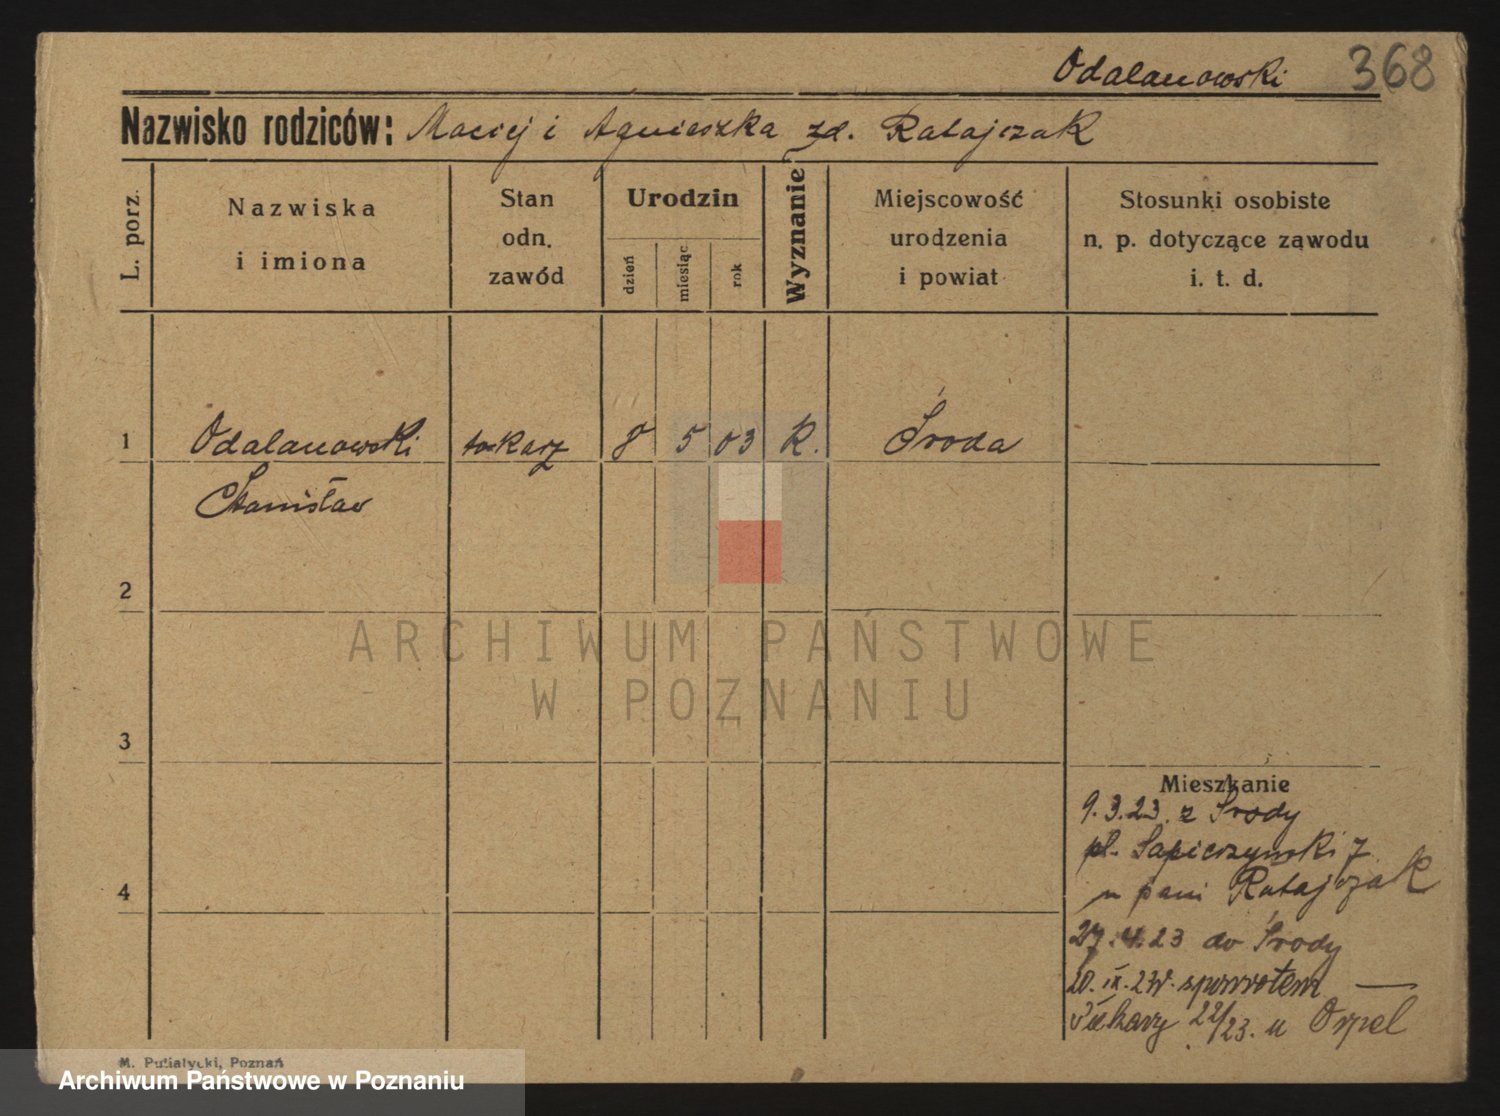 Odalanowski 368
Nazwisko rodziców: Maciej i Agnieszka zd. Ratajczak
L. porz.
Nazwiska
i imiona
Stan
odn.
zawód
Urodzin
dzień
miesiąc
rok
Wyznanie
Miejscowość
urodzenia
i powiat
Stosunki osobiste
n. p. dotyczące zawodu
i. t. d.
1 Odalanowski tokarz 8 5 03 K. Środa
Stanisław
2
ARCHIWUM PAŃSTWOWE
W POZNANIU
3
Mieszkanie
9.3.23. z Środy
pl. Sapieżyński 7
u pani Ratajczak
4
27.4.23 do Środy
20. IX. 23r. spowrotem —
Piekary 22/23. u
M. Putiatycki, Poznań
Archiwum Państwowe w Poznaniu